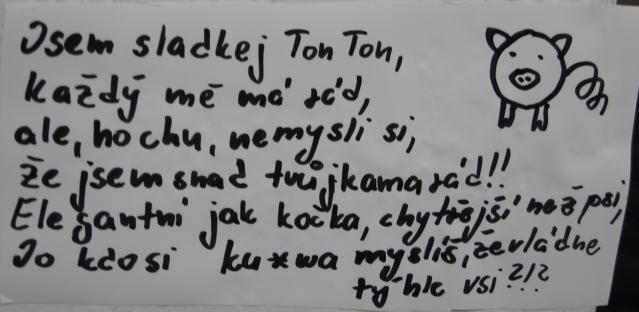 Jsem sladkej Ton Ton,
každý mě má rád,
ale, hochu, nemysli si,
že jsem snad tvůj kamarád!!
Elegantní jak kočka, chytřejší než psi,
Jo kdo si kurwa myslíš, že vládne
týhle vsi?!?